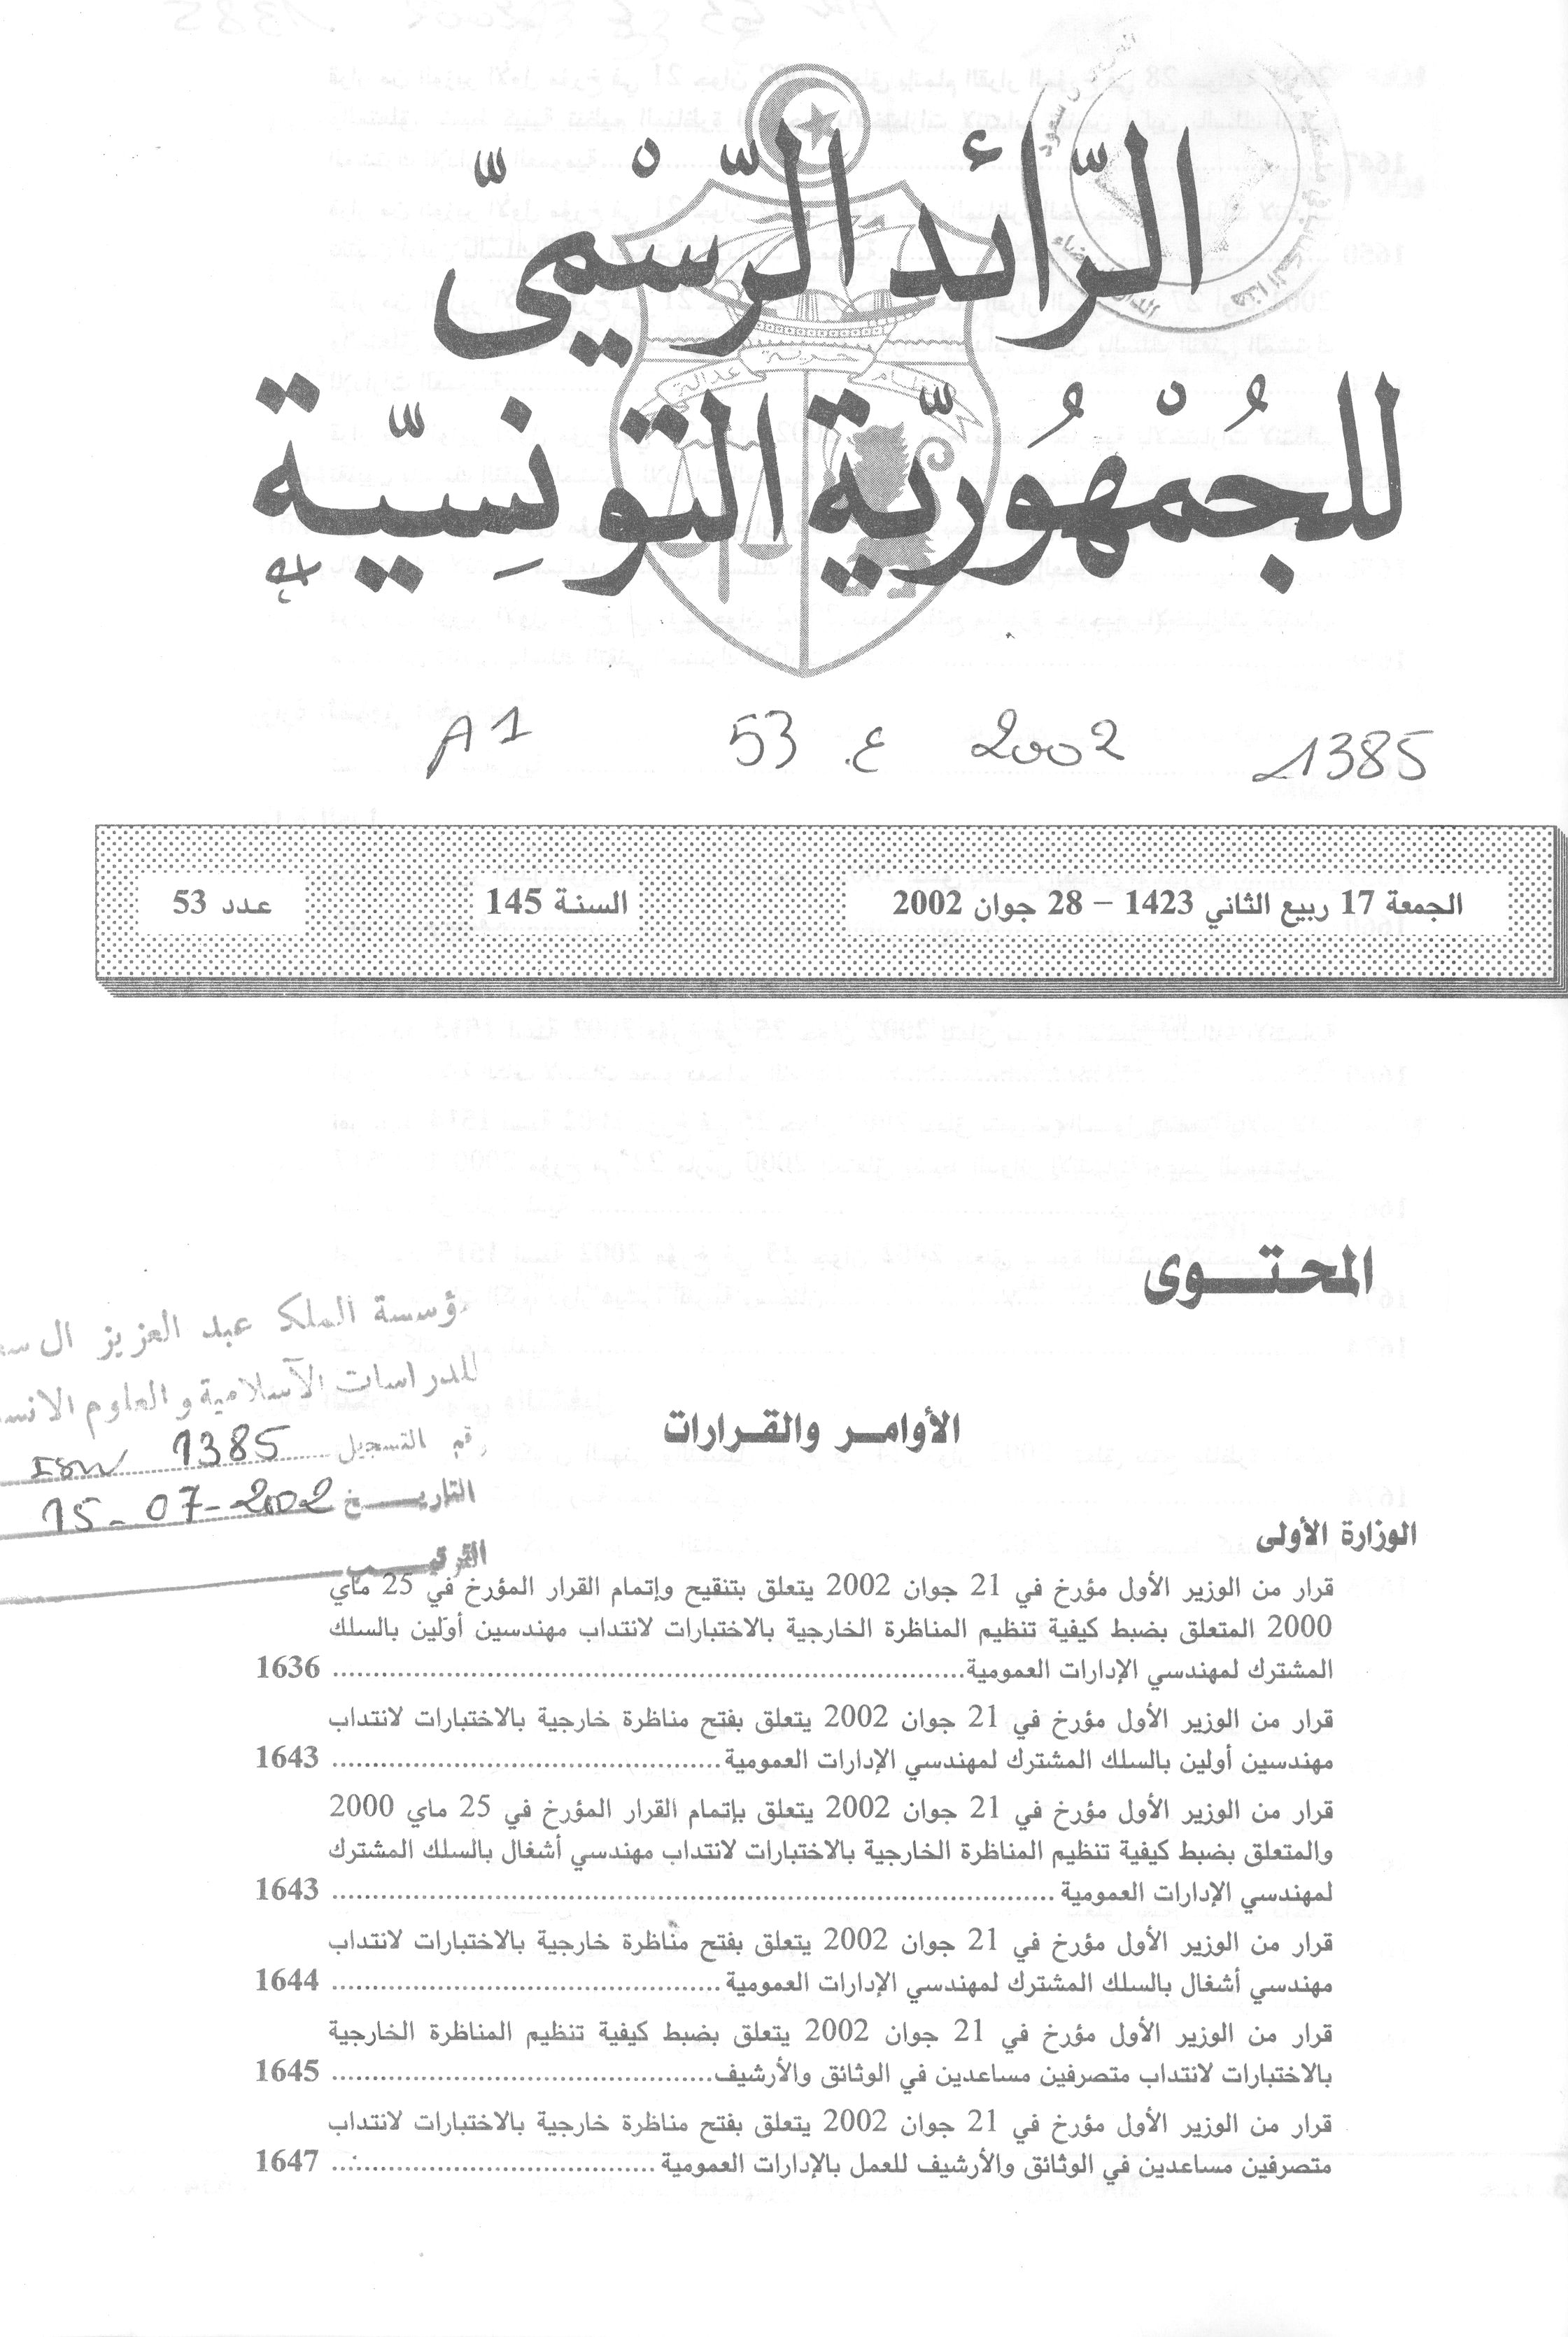 الرّائد الرّسْميّ
للجُمْهُوريّة التّونِسيّة
نظام حرية عدالة
A1 53 ع. 2002 1385
الجمعة 17 ربيع الثاني 1423 – 28 جوان 2002 السنة 145 عدد 53
المحتوى
ؤسسة الملك عبد العزيز ال سع
للدراسات الآسلامية و العلوم الانس
قم التسجيل 1385
التاريخ 15-07-2002
الترتيب
الأوامر والقرارات
الوزارة الأولى
قرار من الوزير الأول مؤرخ في 21 جوان 2002 يتعلق بتنقيح وإتمام القرار المؤرخ في 25 ماي
2000 المتعلق بضبط كيفية تنظيم المناظرة الخارجية بالاختبارات لانتداب مهندسين أوّلين بالسلك
المشترك لمهندسي الإدارات العمومية.................... 1636
قرار من الوزير الأول مؤرخ في 21 جوان 2002 يتعلق بفتح مناظرة خارجية بالاختبارات لانتداب
مهندسين أولين بالسلك المشترك لمهندسي الإدارات العمومية.................... 1643
قرار من الوزير الأول مؤرخ في 21 جوان 2002 يتعلق بإتمام القرار المؤرخ في 25 ماي 2000
والمتعلق بضبط كيفية تنظيم المناظرة الخارجية بالاختبارات لانتداب مهندسي أشغال بالسلك المشترك
لمهندسي الإدارات العمومية .................... 1643
قرار من الوزير الأول مؤرخ في 21 جوان 2002 يتعلق بفتح مناظرة خارجية بالاختبارات لانتداب
مهندسي أشغال بالسلك المشترك لمهندسي الإدارات العمومية.................... 1644
قرار من الوزير الأول مؤرخ في 21 جوان 2002 يتعلق بضبط كيفية تنظيم المناظرة الخارجية
بالاختبارات لانتداب متصرفين مساعدين في الوثائق والأرشيف.................... 1645
قرار من الوزير الأول مؤرخ في 21 جوان 2002 يتعلق بفتح مناظرة خارجية بالاختبارات لانتداب
متصرفين مساعدين في الوثائق والأرشيف للعمل بالإدارات العمومية .................... 1647